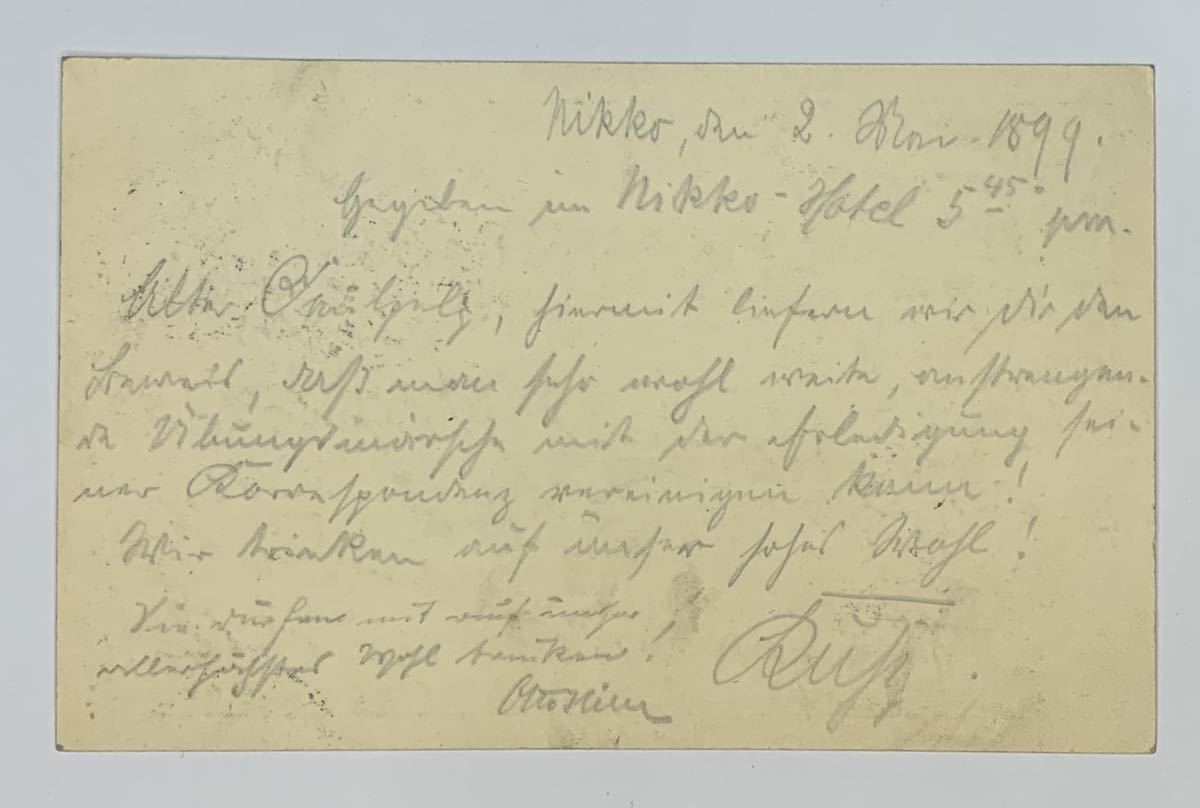 Nikko, den 2. Mai 1899.
Gegeben im Nikko-Hotel 5 45 pm.
Alter, hiermit liefern wir dir den
Beweis, daß man sehr wohl weite, anstrengen-
de Übungsmärsche mit der Erledigung sei-
ner Korrespondenz vereinigen kann!
Wir trinken auf unser hohes Wohl!
Sie dürfen mit auf unser
allerhöchstes Wohl trinken!
Otto